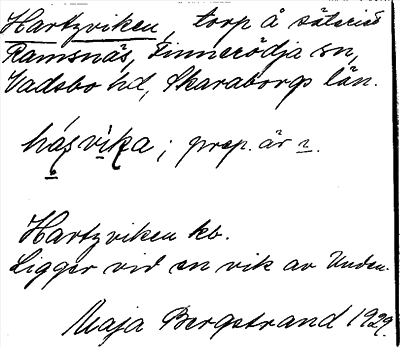 Hartzviken, torp å säteriet
Ramsnäs, Finnerödja sn,
Vadsbo hd, Skaraborgs län.
háṣvi̱ka; prep. är i.
Hartzviken kb.
Ligger vid en vik av Unden.
Maja Bergstrand 1929.